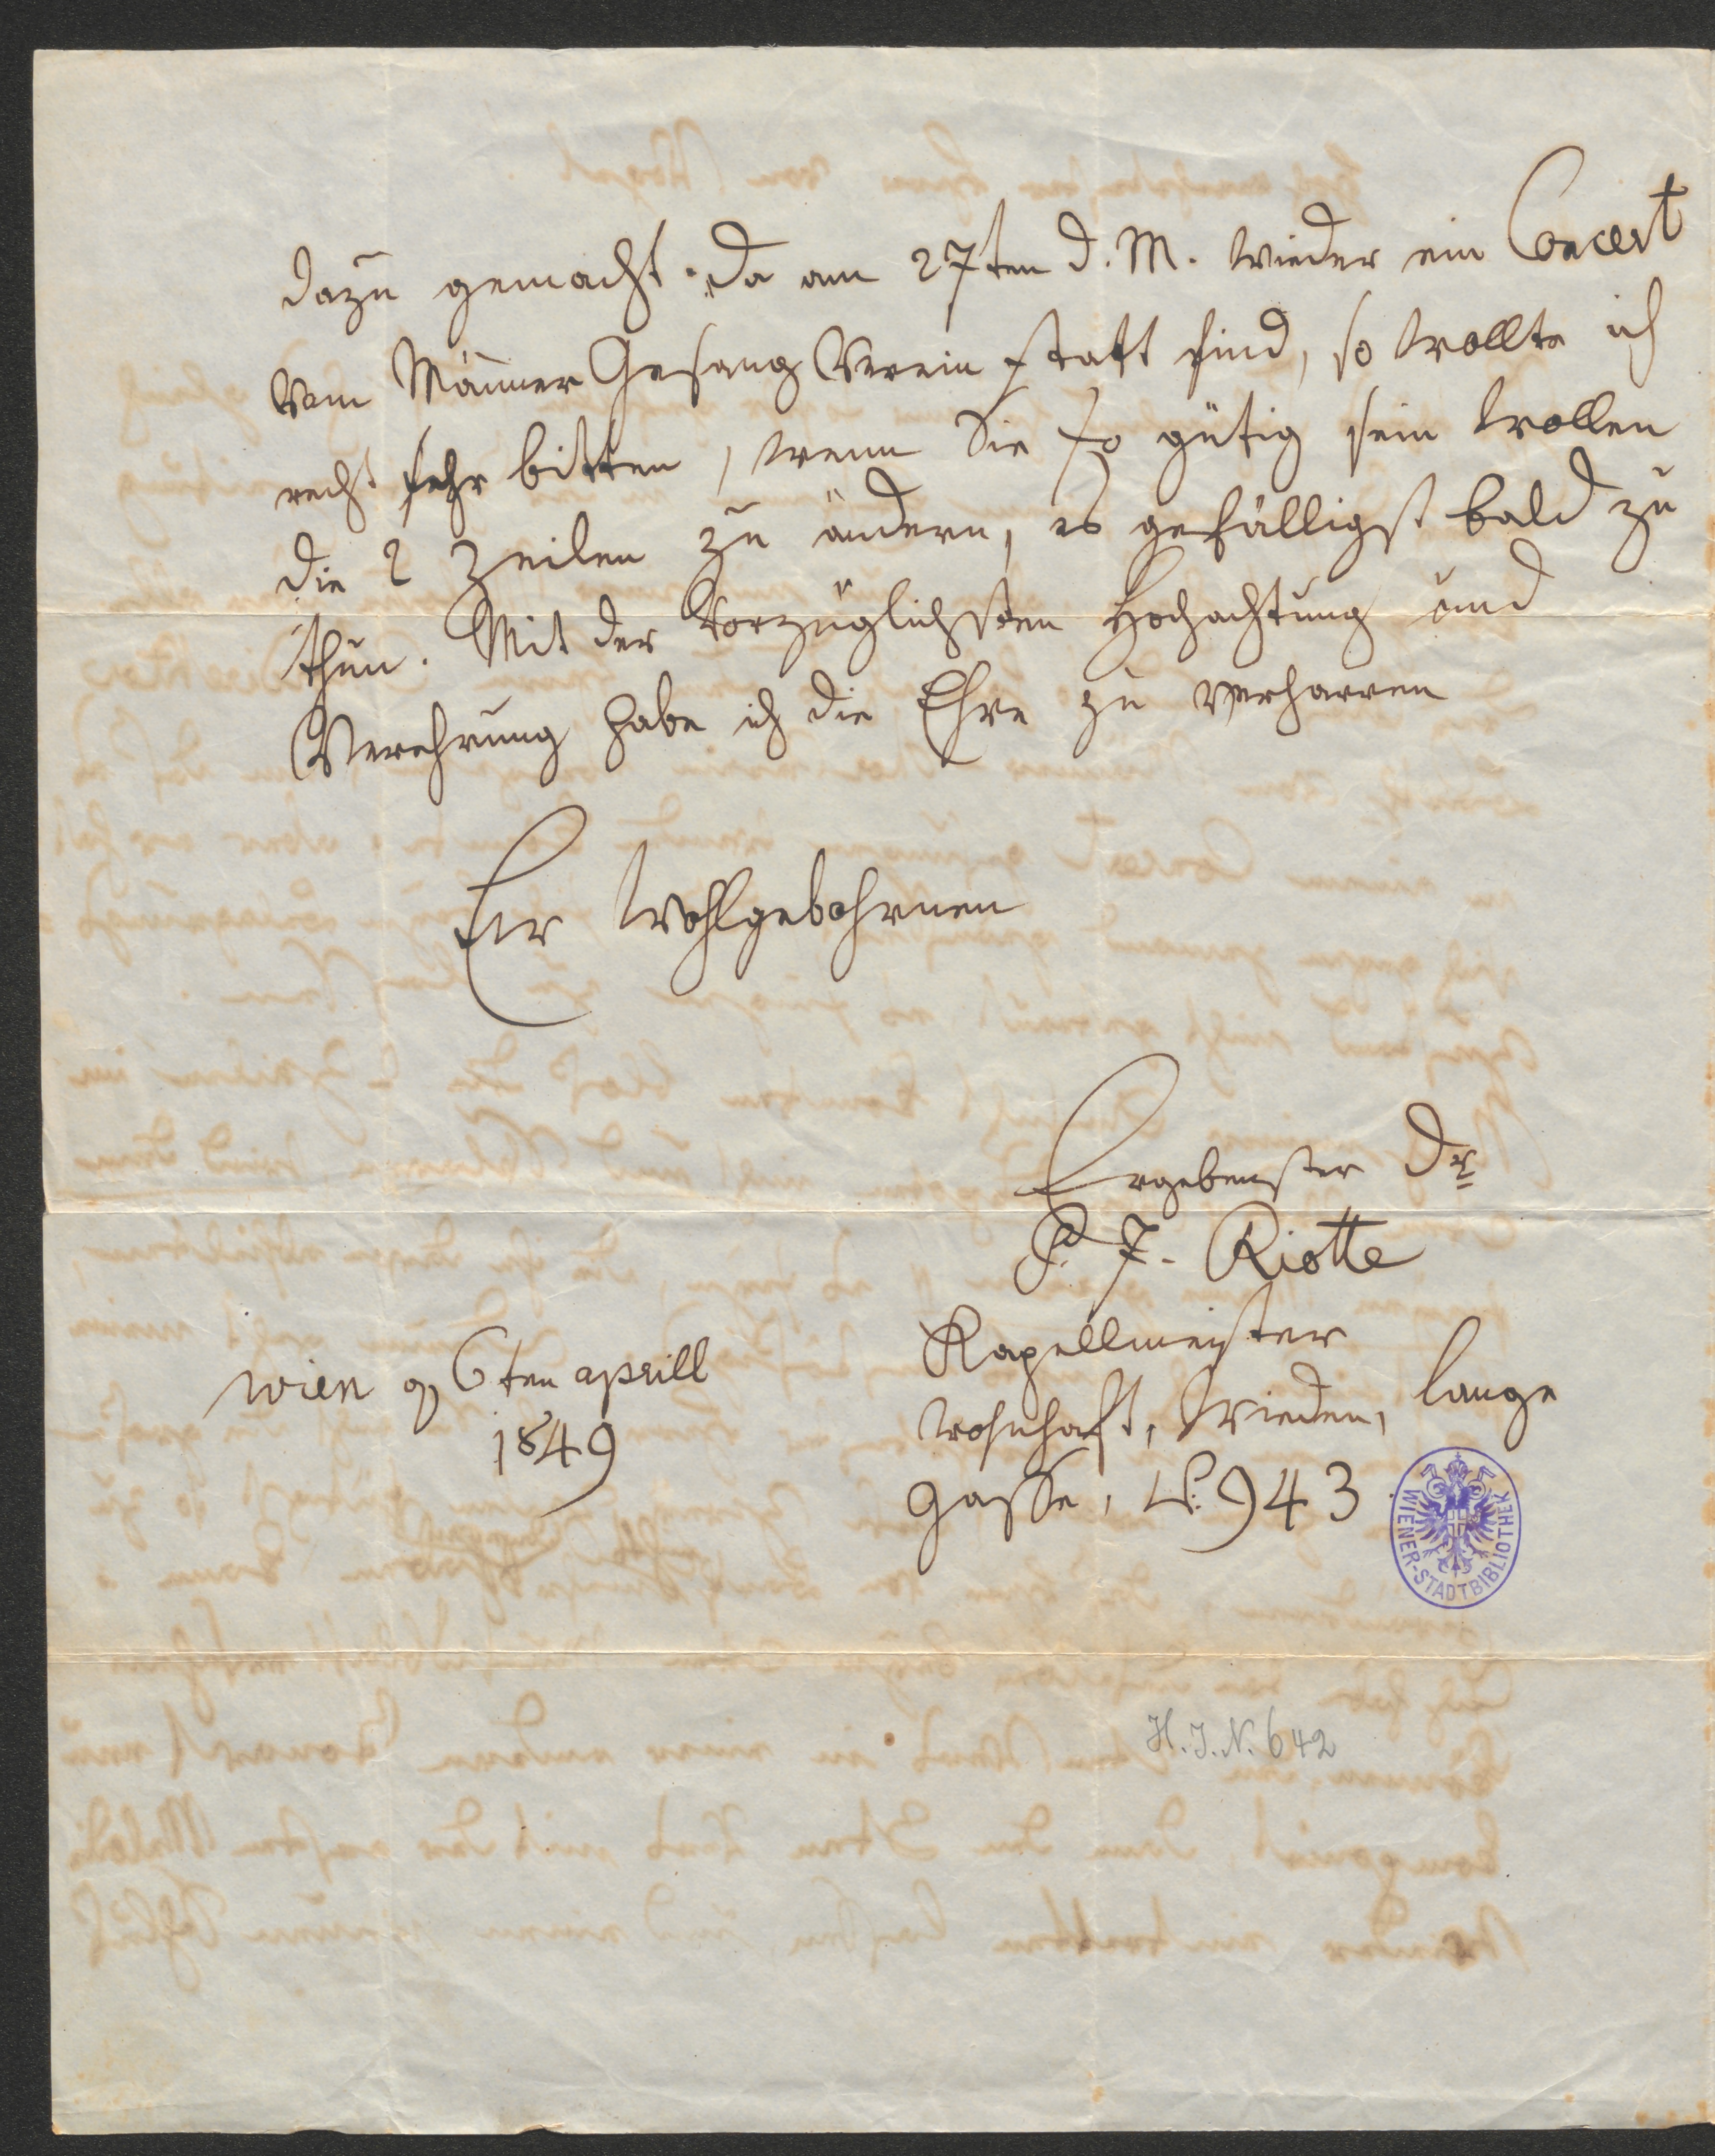 dazu gemacht. Da am 27ten d. M. wieder ein Concert
vom Männer Gesang Verein statt find, so wollte ich
recht sehr bitten, wenn Sie so gütig sein wollen
die 2 Zeilen zu ändern, es gefälligst bald zu
thun. Mit der vorzüglichsten Hochachtung und
Verehrung habe ich die Ehre zu verharren
Eur Wohlgebohrnen
Ergebenster Dr
P. J. Riotte
Kapellmeister
wohnhaft, Wieden, lange
gasse, N: 943
Wien 6ten aprill
1849
WIENER-STADTBIBLIOTHEK
H. J. N. 642